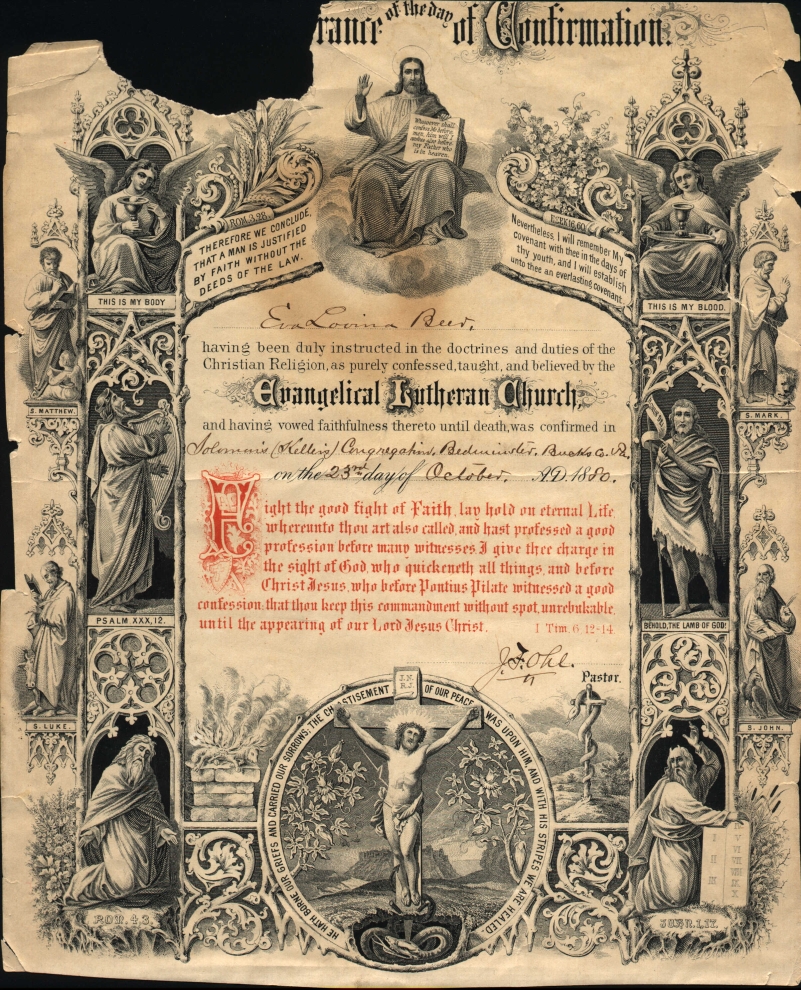 rance of the day of Confirmation.
Whosoever shall
confess Me before
men, him will I
confess also before
my Father who
is in heaven.
ROM. 3, 28.
THEREFORE WE CONCLUDE,
THAT A MAN IS JUSTIFIED
BY FAITH WITHOUT THE
DEEDS OF THE LAW.
EZEK. 16, 60.
Nevertheless, I will remember My
covenant with thee in the days of
thy youth, and I will establish
unto thee an everlasting covenant.
THIS IS MY BODY
THIS IS MY BLOOD.
Eva Lovina Beer,
having been duly instructed in the doctrines and duties of the
Christian Religion, as purely confessed, taught, and believed by the
Evangelical Lutheran Church,
and having vowed faithfulness thereto until death, was confirmed in
Solomon's (Keller's) Congregation, Bedminster, Bucks Co. Pa.
on the 23rd day of October. A.D. 1880.
S. MATTHEW.
S. MARK.
Fight the good fight of Faith, lay hold on eternal Life,
whereunto thou art also called, and hast professed a good
profession before many witnesses. I give thee charge in
the sight of God, who quickeneth all things, and before
Christ Jesus, who before Pontius Pilate witnessed a good
confession; that thou keep this commandment without spot, unrebukable,
until the appearing of our Lord Jesus Christ. 1 Tim. 6, 12-14.
PSALM XXX, 12.
BEHOLD, THE LAMB OF GOD!
J. F. Ohl.
Pastor.
J.N.
R.J.
HE HATH BORNE OUR GRIEFS AND CARRIED OUR SORROWS; THE CHASTISEMENT OF OUR PEACE WAS UPON HIM, AND WITH HIS STRIPES WE ARE HEALED.
S. LUKE.
S. JOHN.
I
II
III
IV
V
VI
VII
VIII
IX
X
ROM. 4, 3.
JOHN. 1, 17.